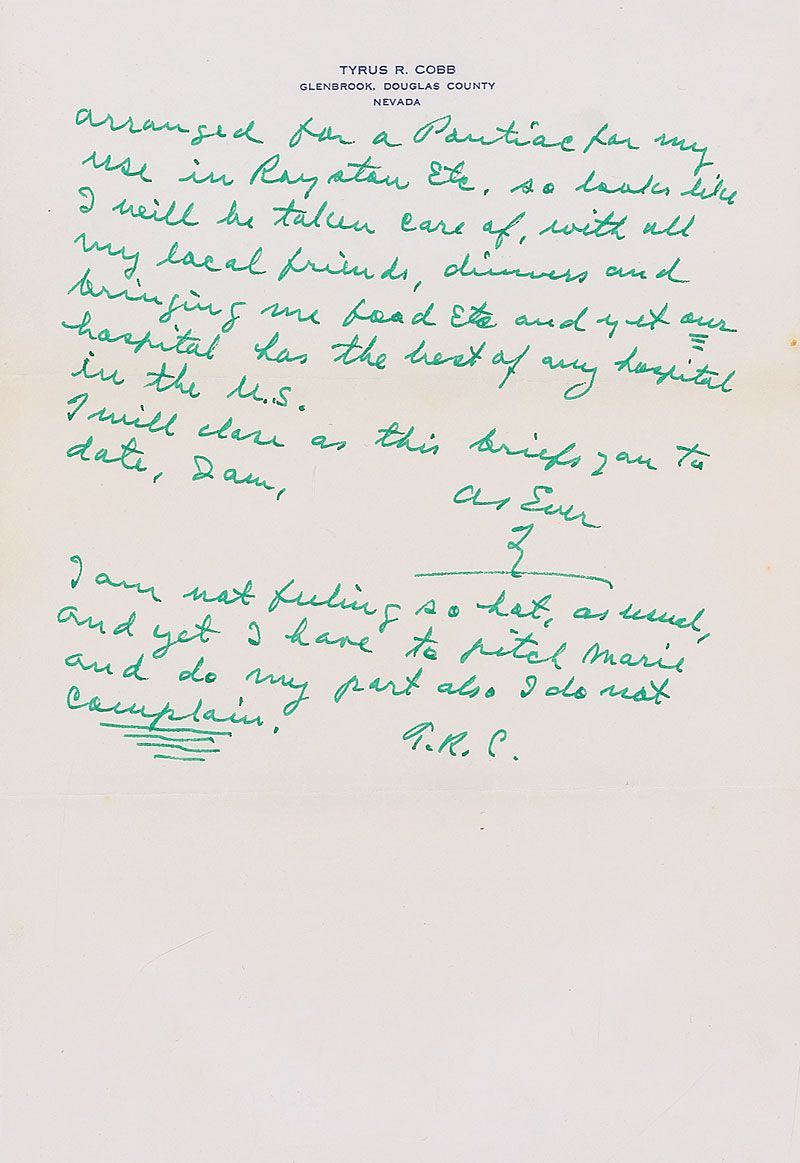 TYRUS R. COBB
GLENBROOK, DOUGLAS COUNTY
NEVADA
arranged for a Pontiac for my
use in Royston Etc. so looks like
I will be taken care of, with all
my local friends, dinners and
bringing me food Etc and yet our
hospital has the best of any hospital
in the U.S.
I will close as this briefs you to
date, I am,
as Ever
Ty
I am not feeling so hot, as usual,
and yet I have to pitch Marie
and do my part also I do not
complain.
T.R.C.